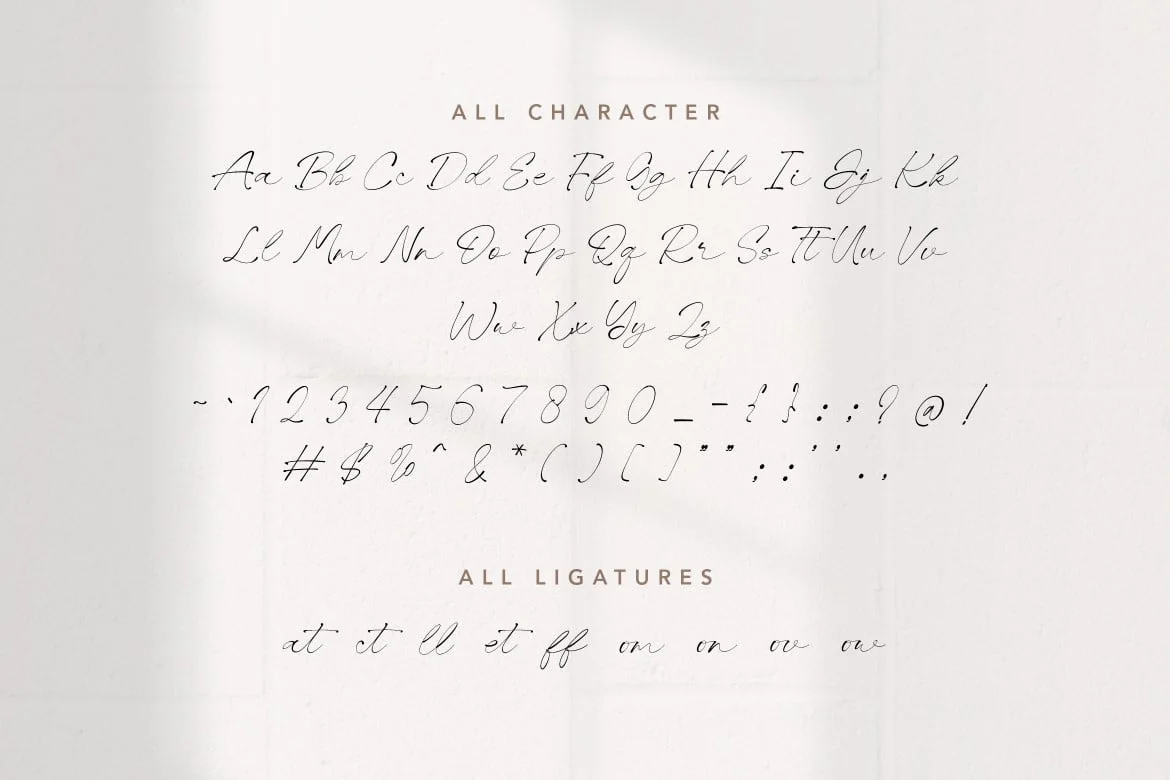 ALL CHARACTER
Aa Bb Cc Dd Ee Ff Gg Hh Ii Jj Kk
Ll Mm Nn Oo Pp Qq Rr Ss Tt Uu Vv
Ww Xx Yy Zz
~ ` 1 2 3 4 5 6 7 8 9 0 _ - { } : ; ? @ !
# $ % ^ & * ( ) [ ] " " ; : ' ' . ,
ALL LIGATURES
at ct ll et ff om on ov ow